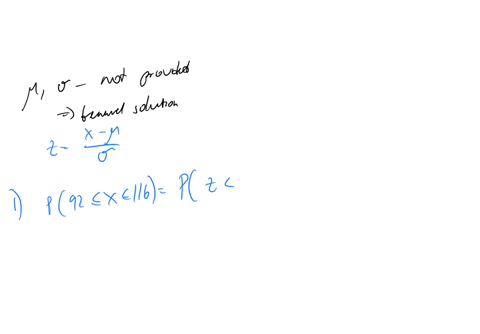 μ, σ - not provided
⇒ general solution
z = (x - μ)/σ
1) P(92 ≤ x ≤ 116) = P( z <